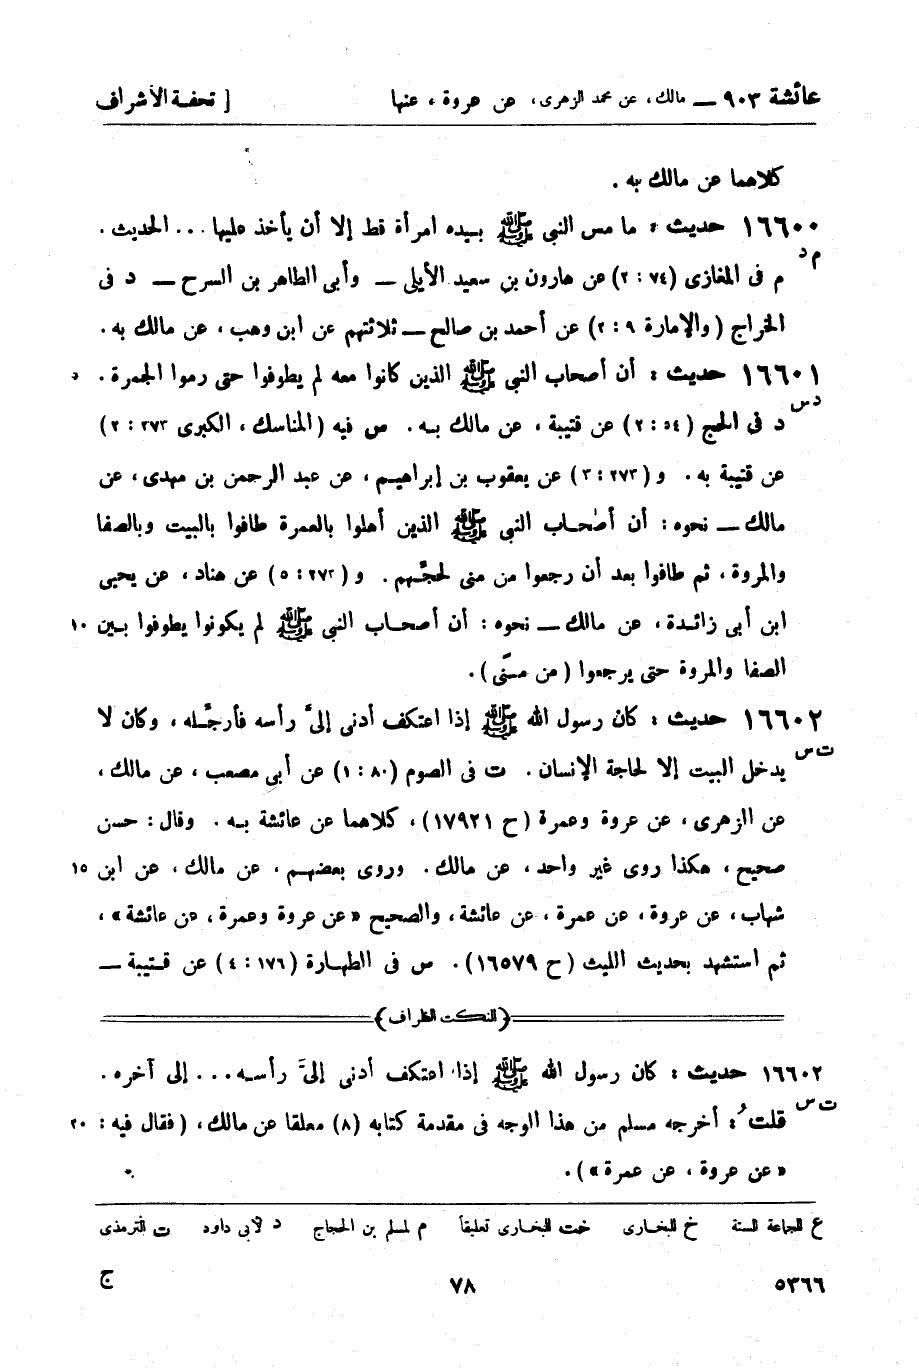 عائشة ٩٠٣ — مالك، عن محمد الزهرى، عن عروة، عنها [ تحفة الأشراف
كلاهما عن مالك به .
١٦٦٠٠ حديث : ما مس النبى ﷺ بيده امرأة قط إلا أن يأخذ عليها ... الحديث .
م د
م فى المغازى (٧٤ : ٢) عن هارون بن سعيد الأيلى — وأبى الطاهر بن السرح — د فى
الخراج (والإمارة ٩ : ٢) عن أحمد بن صالح — ثلاثتهم عن ابن وهب، عن مالك به .
١٦٦٠١ حديث : أن أصحاب النبى ﷺ الذين كانوا معه لم يطوفوا حتى رموا الجمرة .
د س
د فى الحج (٥٤ : ٢) عن قتيبة ، عن مالك به . س فيه (المناسك ، الكبرى ٢٧٣ : ٢)
عن قتيبة به . و (٢٧٣ : ٣) عن يعقوب بن إبراهيم ، عن عبد الرحمن بن مهدى ، عن
مالك — نحوه : أن أصحاب النبى ﷺ الذين أهلوا بالعمرة طافوا بالبيت وبالصفا
والمروة ، ثم طافوا بعد أن رجعوا من منى لحجّهم . و (٢٧٣ : ٥) عن هناد ، عن يحيى
ابن أبى زائدة ، عن مالك — نحوه : أن أصحاب النبى ﷺ لم يكونوا يطوفوا بين ١٠
الصفا والمروة حتى يرجعوا (من منّى) .
١٦٦٠٢ حديث : كان رسول الله ﷺ إذا اعتكف أدنى إلىَّ رأسه فأرجّله ، وكان لا
ت س
يدخل البيت إلا لحاجة الإنسان . ت فى الصوم (٨٠ : ١) عن أبى مصعب ، عن مالك ،
عن الزهرى ، عن عروة وعمرة (ح ١٧٩٢١) ، كلاهما عن عائشة به . وقال : حسن
صحيح ، هكذا روى غير واحد ، عن مالك . وروى بعضهم ، عن مالك ، عن ابن ١٥
شهاب ، عن عروة ، عن عمرة ، عن عائشة ، والصحيح «عن عروة وعمرة ، عن عائشة» ،
ثم استشهد بحديث الليث (ح ١٦٥٧٩) . س فى الطهارة (١٧٦ : ٤) عن قتيبة —
﴿النكت الظراف﴾
١٦٦٠٢ حديث : كان رسول الله ﷺ إذا اعتكف أدنى إلىَّ رأسه ... إلى آخره .
ت س
قلتُ : أخرجه مسلم من هذا الوجه فى مقدمة كتابه (٨) معلقا عن مالك ، (فقال فيه : ٢٠
«عن عروة ، عن عمرة») .
ع للجماعة الستة خ للبخارى خت للبخارى تعليقاً م لمسلم بن الحجاج د لأبى داود ت للترمذى
٥٣٦٦ ٧٨ ج